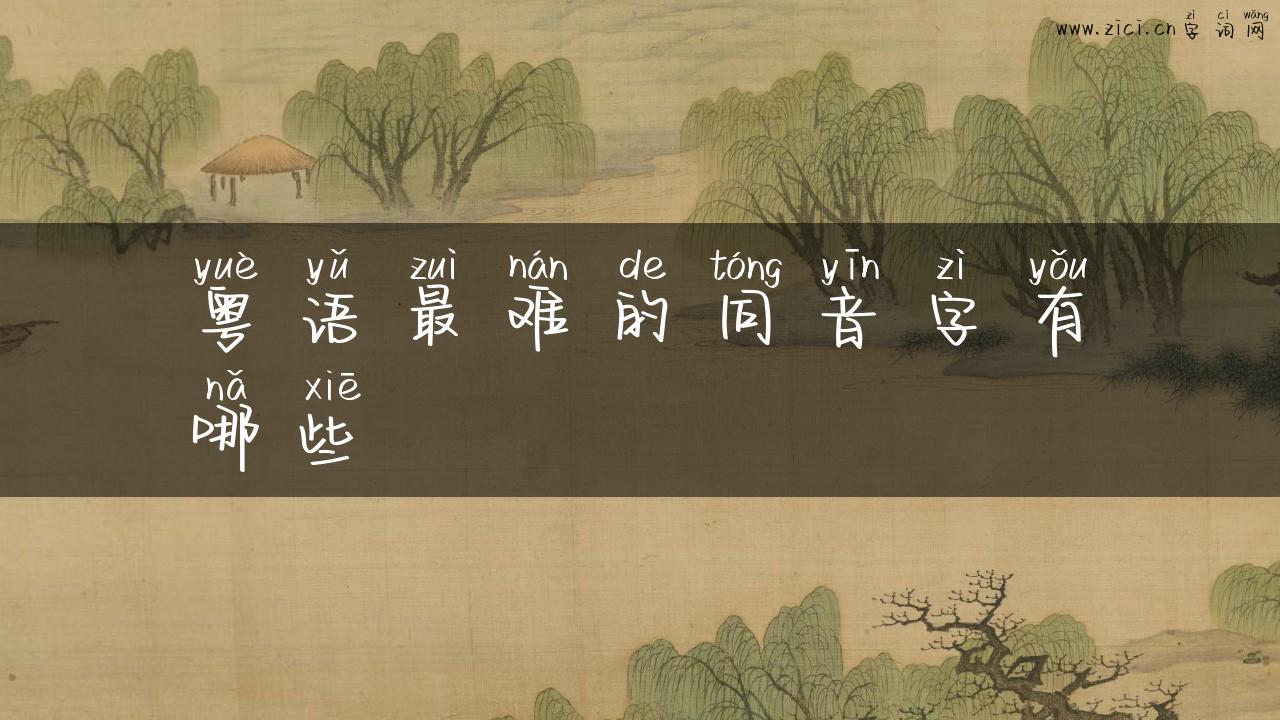 zì cí wǎng
www.zici.cn 字 词 网
yuè yǔ zuì nán de tóng yīn zì yǒu
粤 语 最 难 的 同 音 字 有
nǎ xiē
哪 些